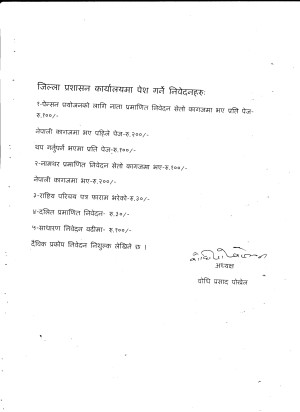 जिल्ला प्रशासन कार्यालयमा पेश गर्ने निवेदनहरुः
१-पेन्सन प्रयोजनको लागि नाता प्रमाणित निवेदन सेतो कागजमा भए प्रति पेज-
रु.१००/-
नेपाली कागजमा भए पहिले पेज-रु.२००/-
थप गर्नुपर्ने भएमा प्रति पेज-रु.१००/-
२-नामथर प्रमाणित निवेदन सेतो कागजमा भए-रु.१००/-
नेपाली कागजमा भए-रु.२००/-
३-राष्ट्रिय परिचय पत्र फाराम भरेको-रु.३०/-
४-दलित प्रमाणित निवेदन- रु.३०/-
५-साधारण निवेदन बढीमा- रु.१००/-
दैविक प्रकोप निवेदन निशुल्क लेखिने छ ।
अध्यक्ष
बोधि प्रसाद पोखेल